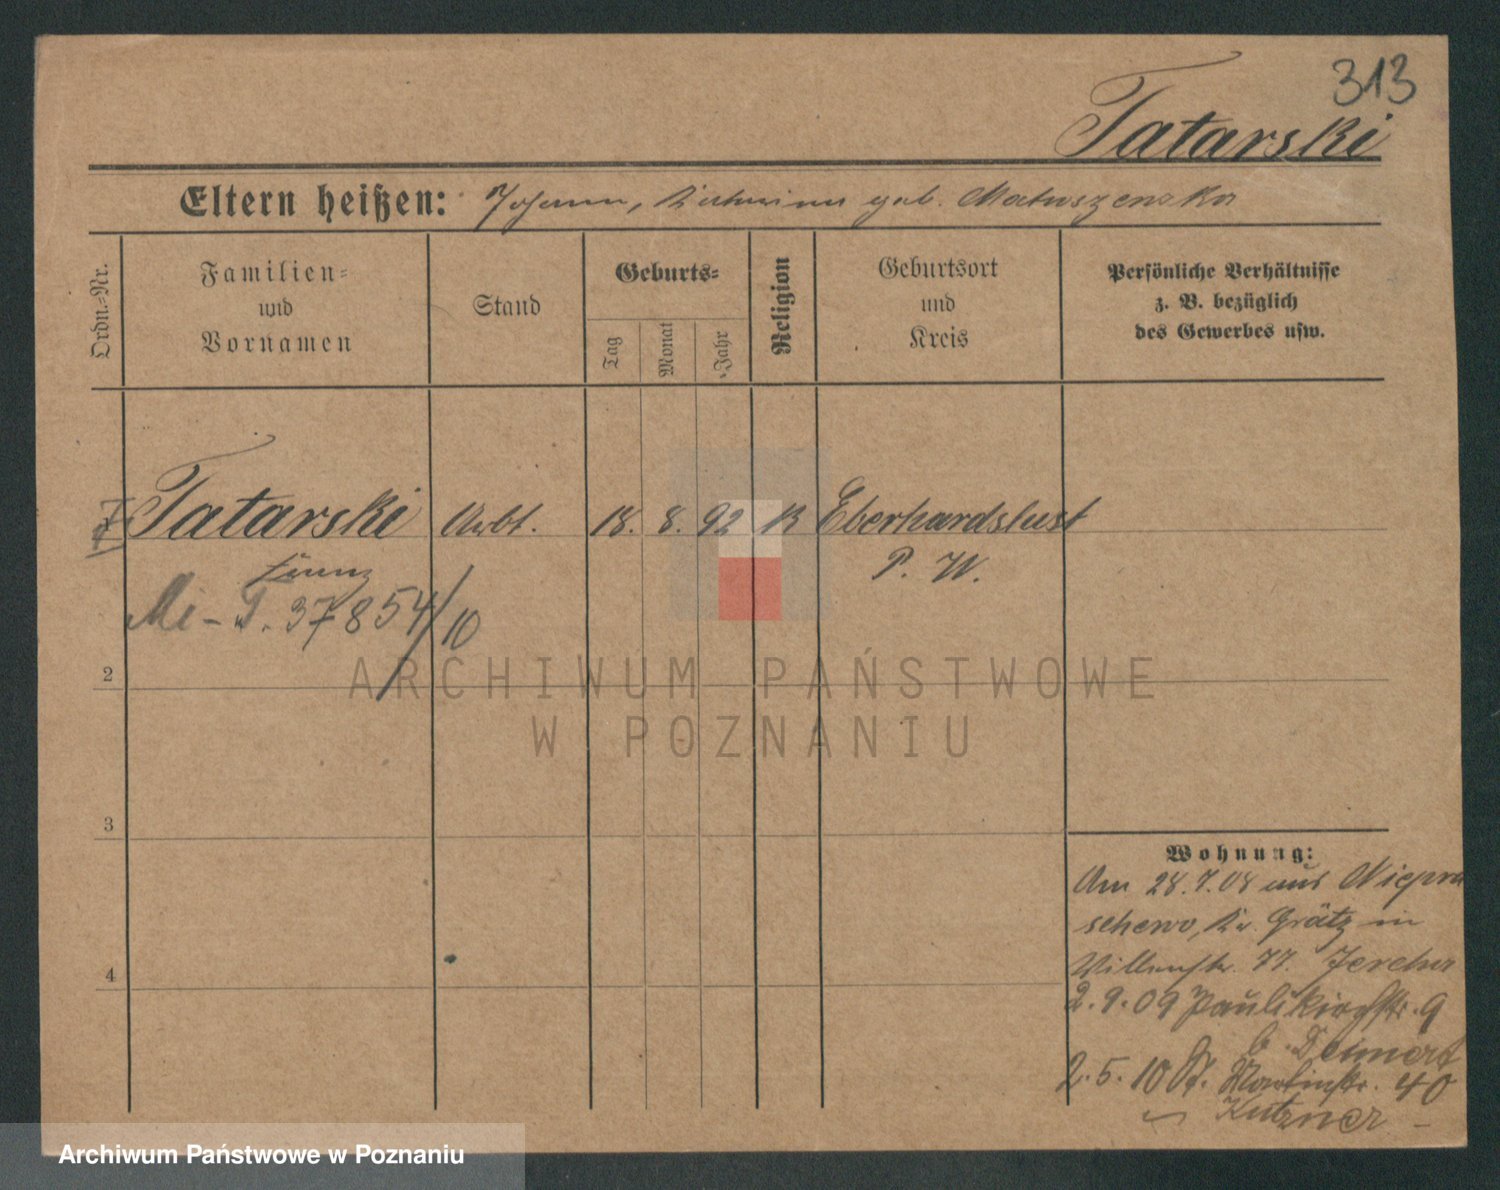 313
Tatarski
Eltern heißen: Johann, geb. Matuszewska
Ordn.-Nr.
Familien-
und
Vornamen
Stand
Geburts-
Tag
Monat
Jahr
Religion
Geburtsort
und
Kreis
Persönliche Verhältnisse
z. B. bezüglich
des Gewerbes usw.
Tatarski Arbt. 18. 8. 92 K Eberhardslust
Franz P. W.
Mi - T. 37854/10
2
ARCHIWUM PAŃSTWOWE
W POZNANIU
3
Wohnung:
Am 28.7.08 aus Niepru
schewo, Kr. Grätz in
77.
4
2.9.09 Paulikirchstr. 9
b.
2.5.10 St. Martinstr. 40
Kutzner
Archiwum Państwowe w Poznaniu